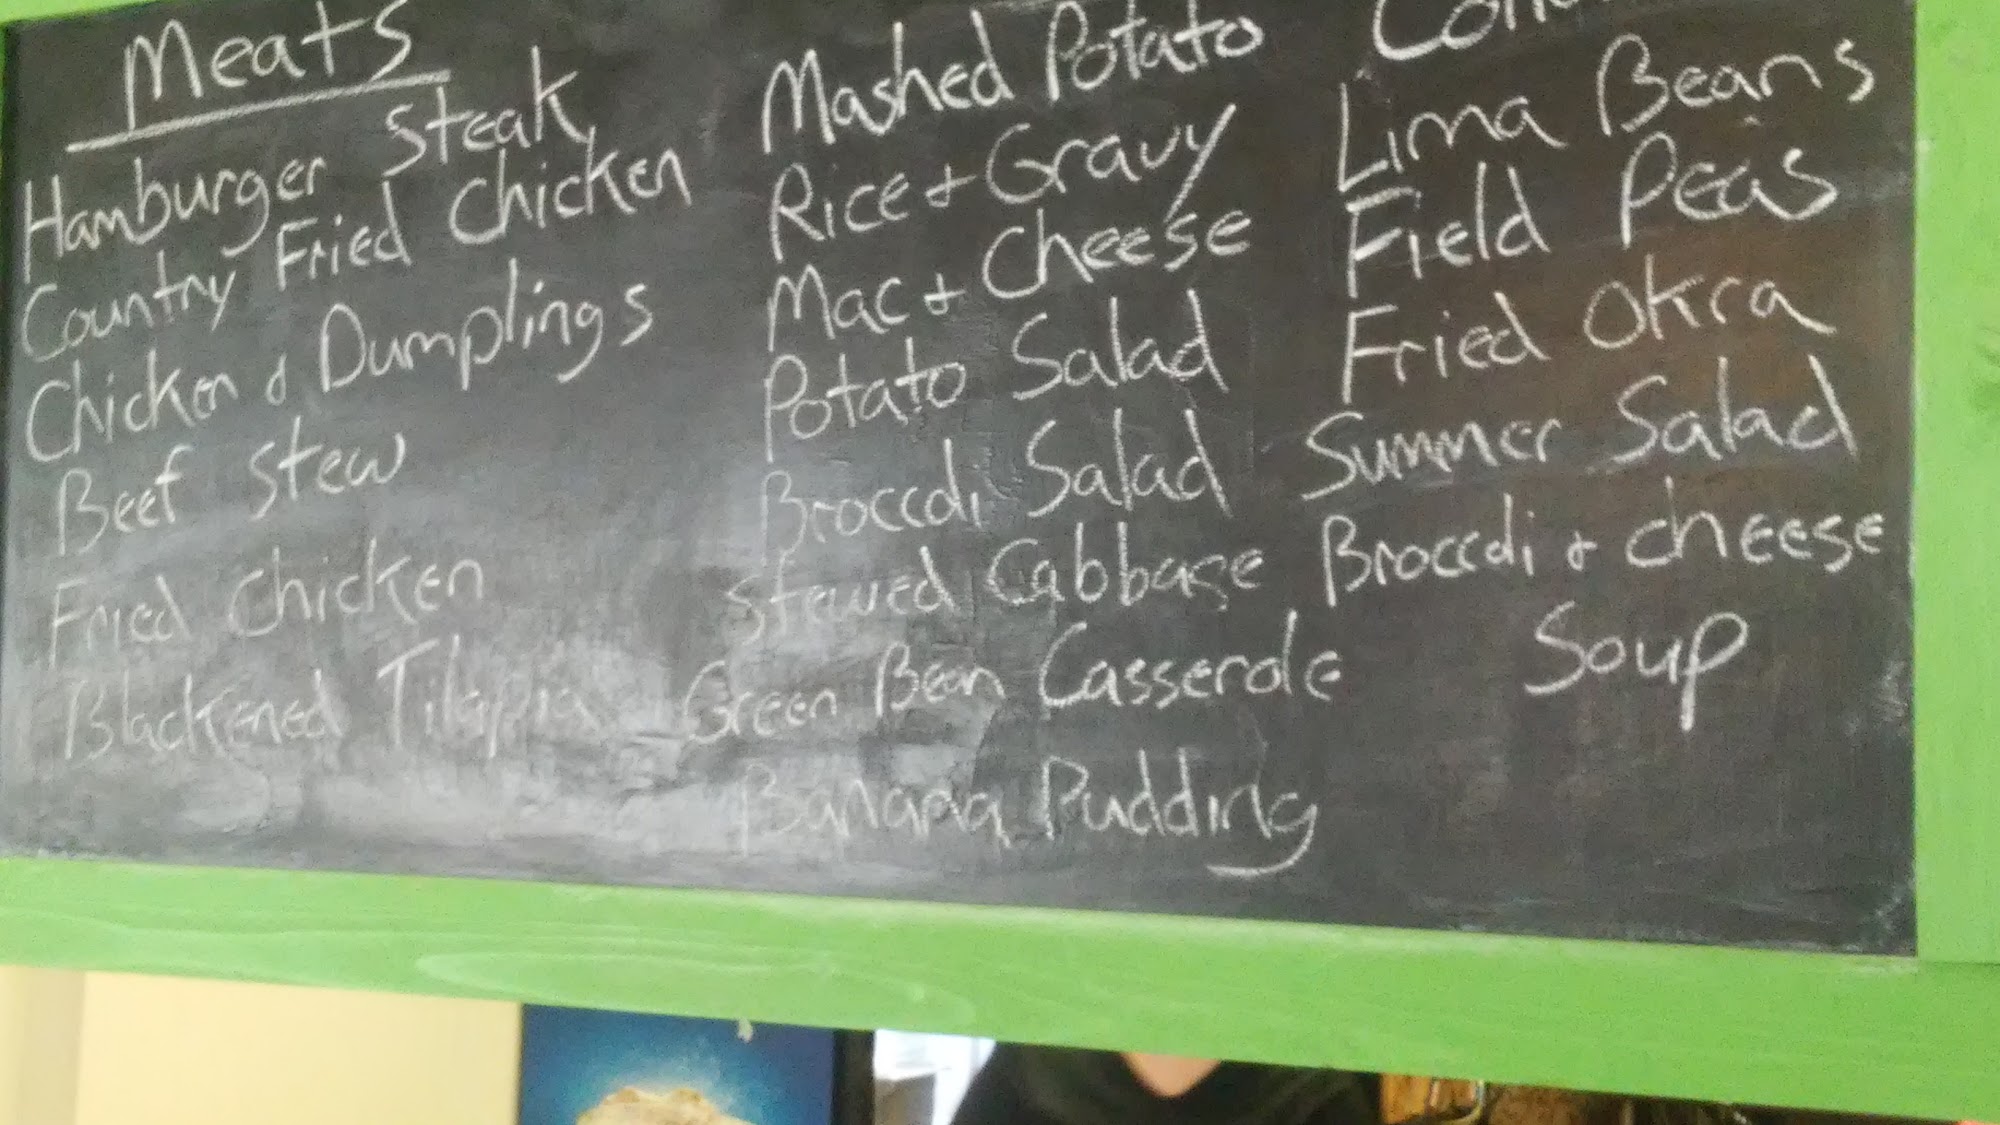 Meats
Hamburger Steak
Country Fried Chicken
Chicken & Dumplings
Beef Stew
Fried Chicken
Blackened Tilapia
Mashed Potato
Rice & Gravy
Mac & Cheese
Potato Salad
Broccoli Salad
Stewed Cabbage
Green Bean Casserole
Banana Pudding
Lima Beans
Field Peas
Fried Okra
Summer Salad
Broccoli & cheese
Soup